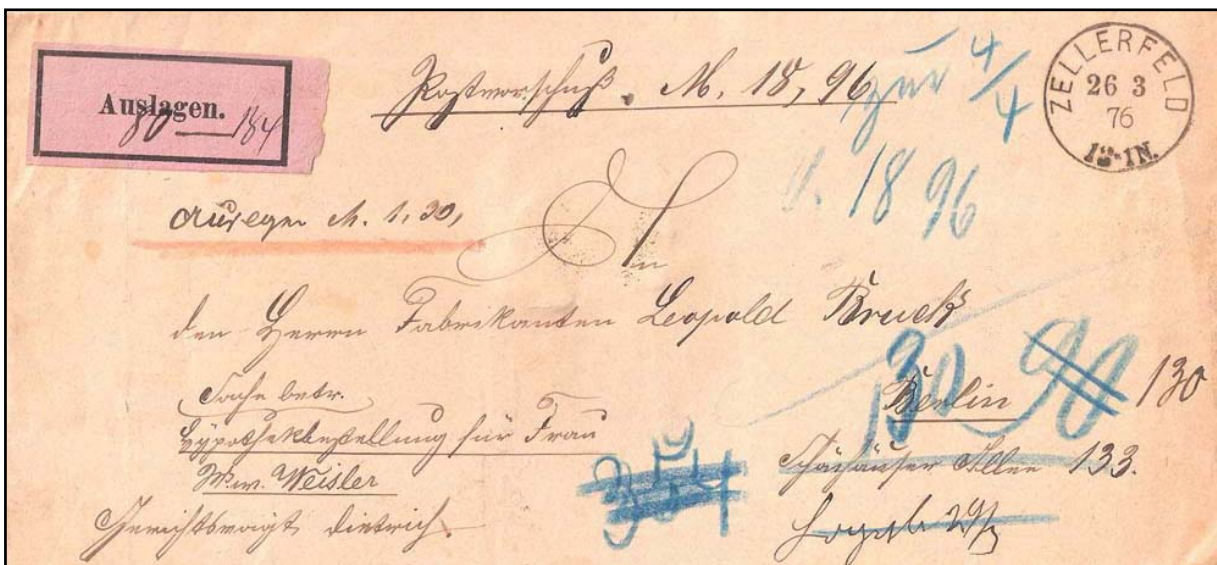 Auslagen.
80 — 184
Postvorschuß. M. 18,96
zur 4/4
18 96
ZELLERFELD
26 3
76
12-1N.
M. 1.30,
An
den Herrn Fabrikanten Leopold Bruck
Berlin
130
90
130
Sache betr.
Hypothekbestellung für Frau
Ww. Weisler
Allee 133.
354
Gerichtsvogt Dietrich.